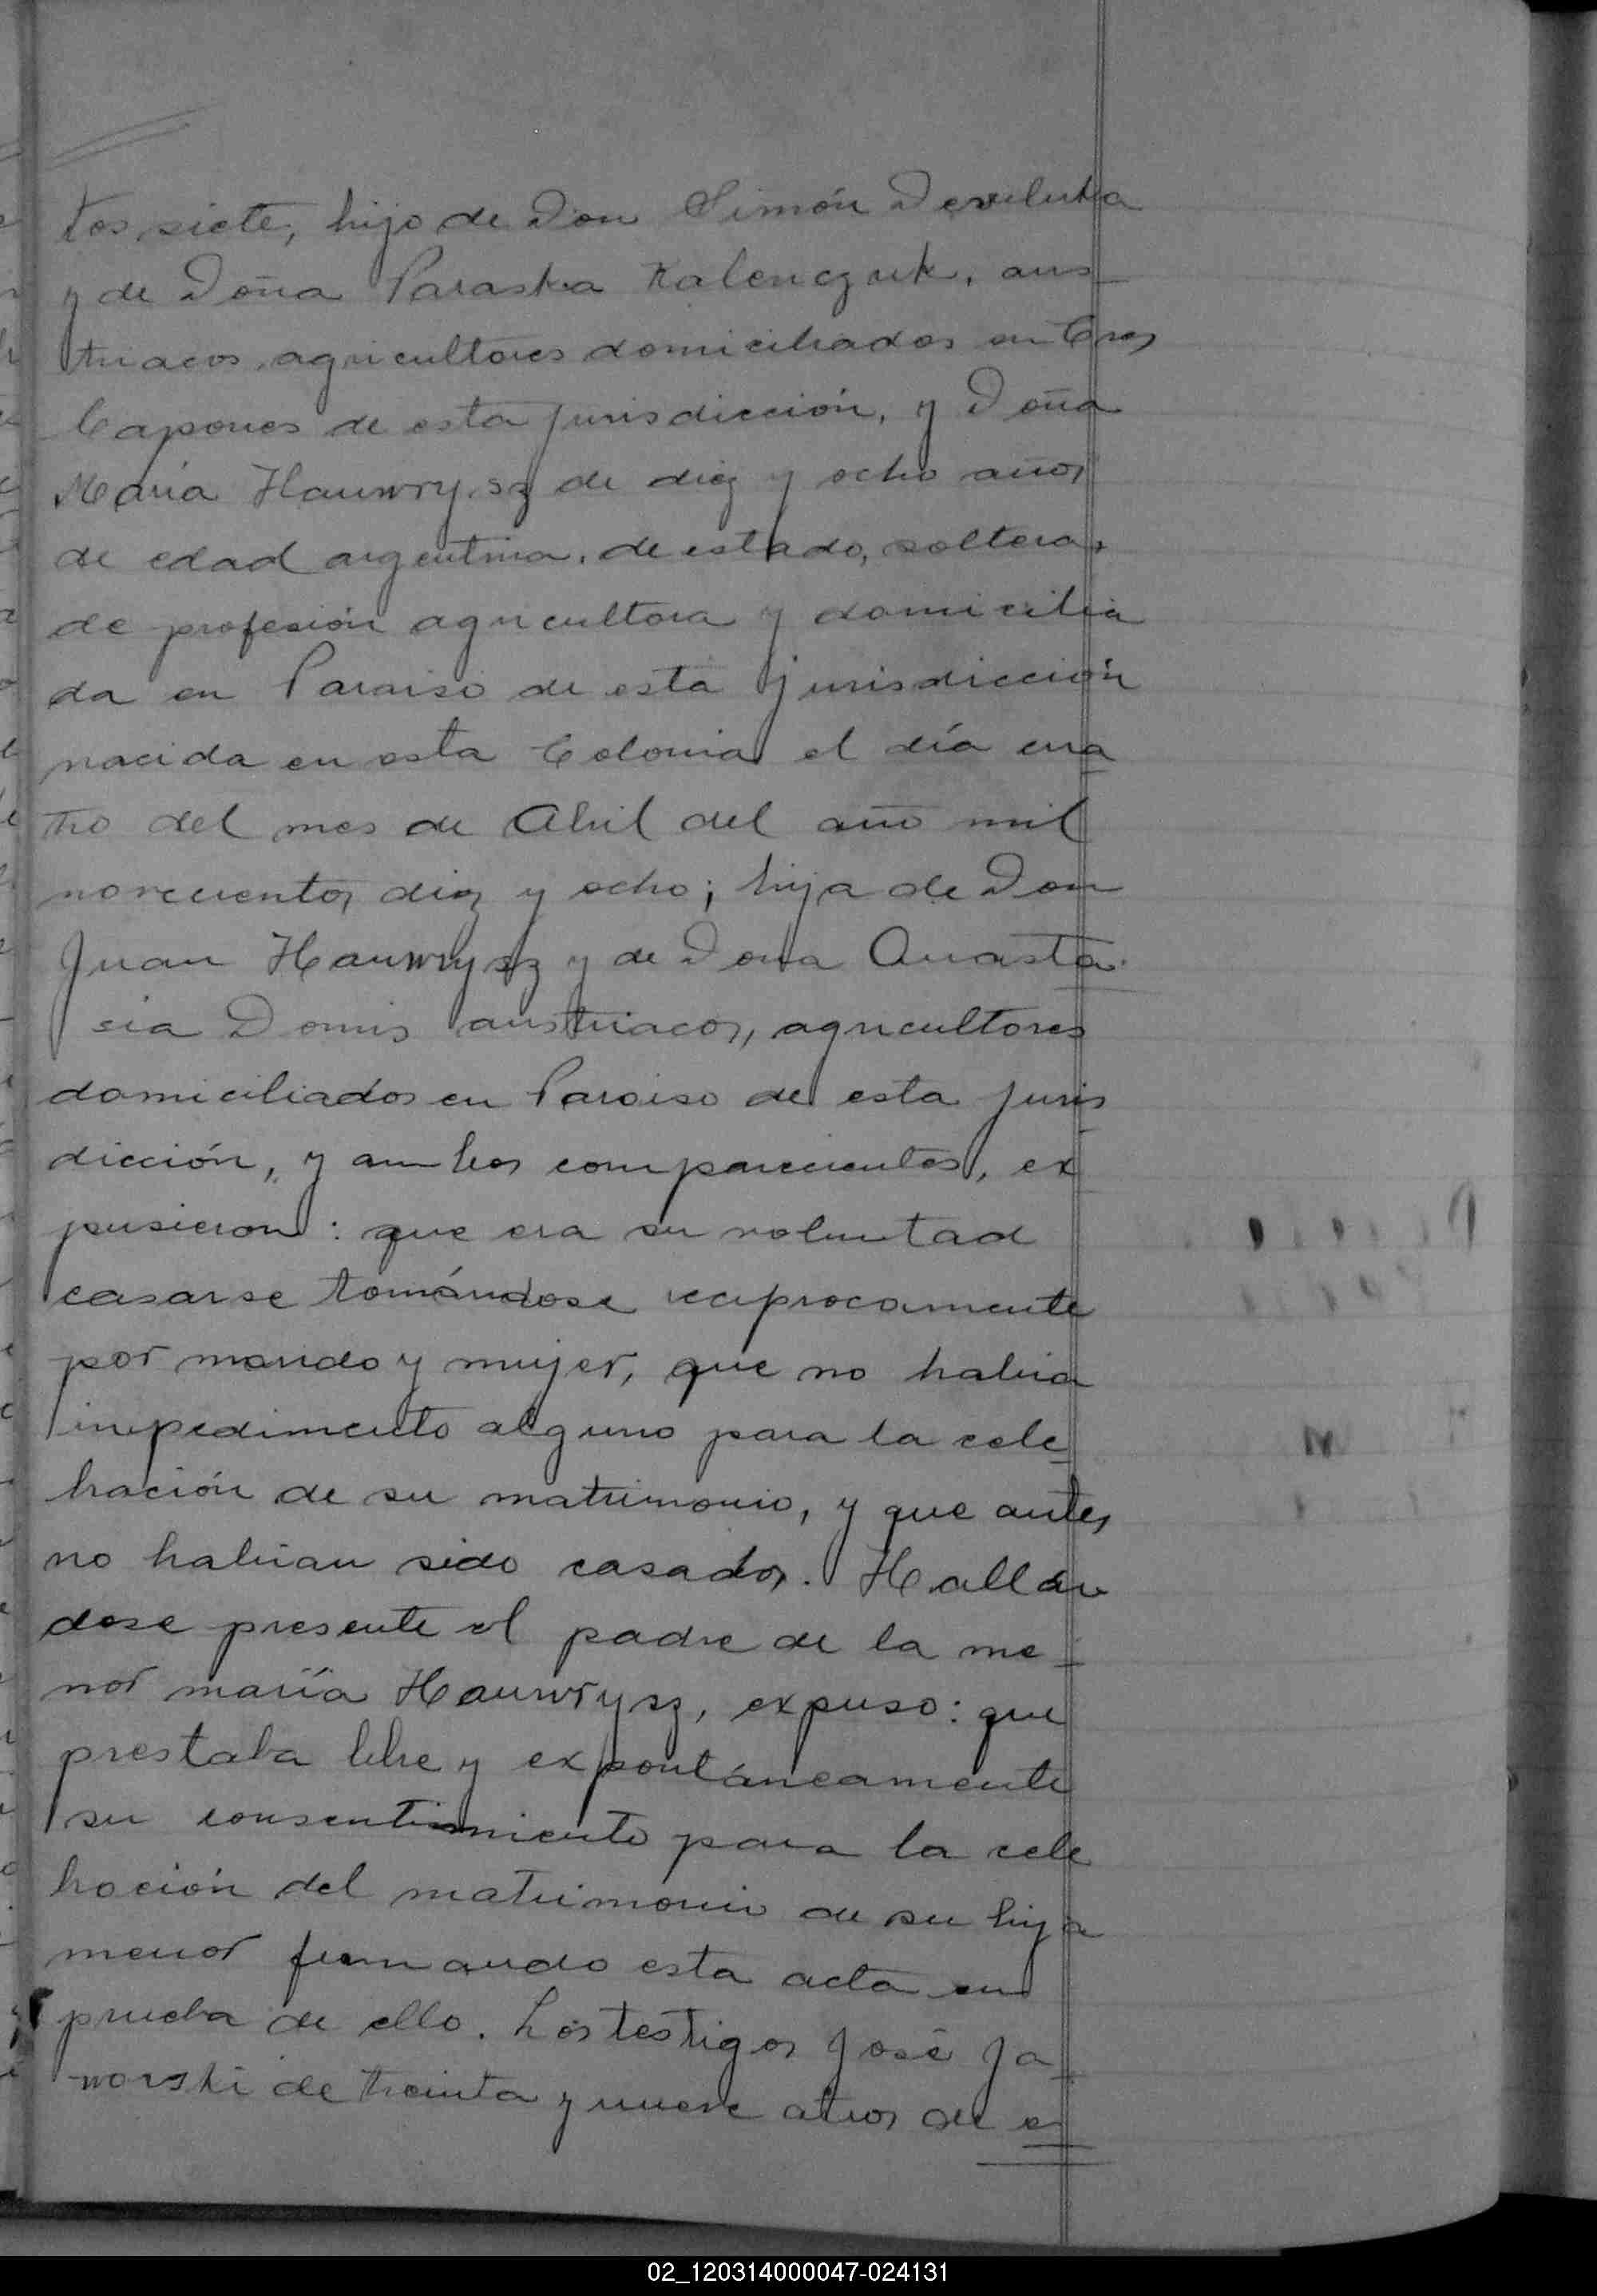 tos siete, hijo de Don Simón Develuka
y de Doña Paraska Kalenczuk, aus
triacos, agricultores domiciliados en Tres
Capones de esta jurisdicción, y Doña
María Hauwrysz de diez y ocho años
de edad argentina, de estado, soltera,
de profesión agricultora y domicilia
da en Paraiso de esta jurisdicción
nacida en esta Colonia el día cua
tro del mes de Abril del año mil
novecientos diez y ocho; hija de Don
Juan Hauwrysz y de Doña Anasta
sia Domis austriacos, agricultores
domiciliados en Paraiso de esta juris
dicción, y ambos comparecientes, ex
pusieron: que era su voluntad
casarse tomándose reciprocamente
por marido y mujer, que no habia
impedimento alguno para la cele
bración de su matrimonio, y que antes
no habian sido casados. Hallán
dose presente el padre de la me
nor maría Hauwrysz, expuso: que
prestaba libre y expontáneamente
su consentimiento para la cele
bración del matrimonio de su hija
menor firmando esta acta en
prueba de ello. Los testigos José Ja
worski de treinta y nueve años de e
02_120314000047-024131